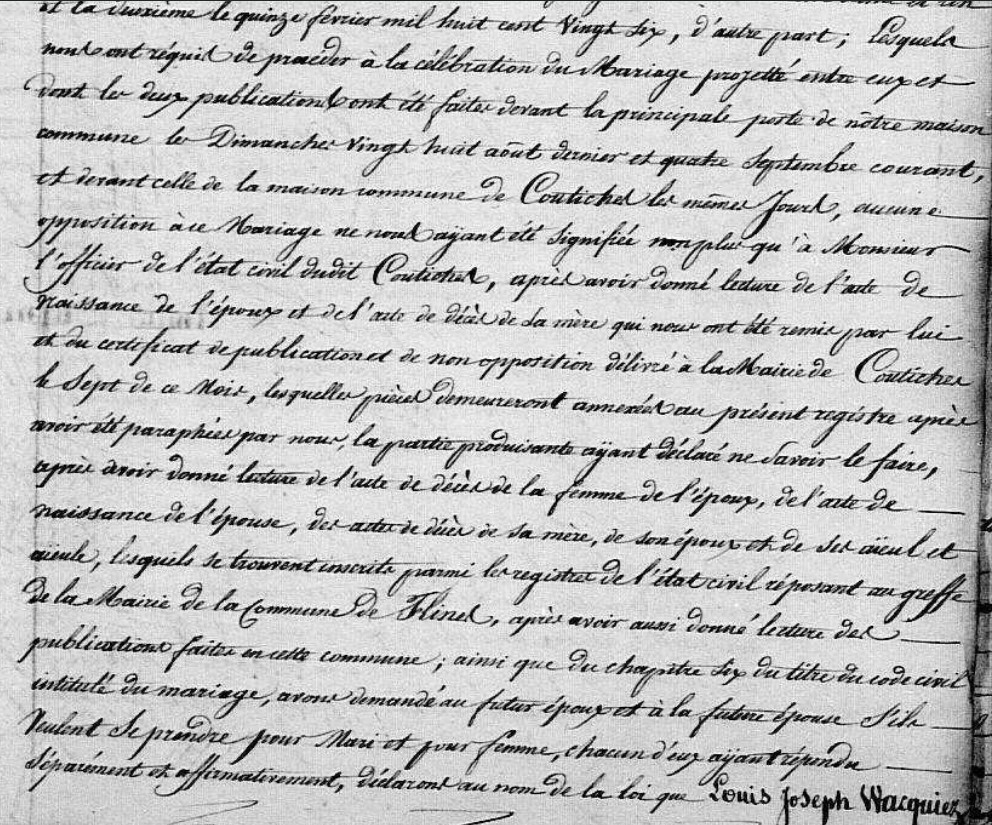 et la deuxième le quinze février mil huit cent Vingt Six, d'autre part ; Lesquels
nous ont réquis de procéder à la célébration du Mariage projetté entre eux et
dont les deux publications ont été faites devant la principale porte de nôtre maison
commune les Dimanches Vingt huit août dernier et quatre Septembre courant,
et devant celle de la maison commune de Coutiches les mêmes Jours, aucune
opposition à ce Mariage ne nous ayant été signifiée non plus qu'à Monsieur
l'officier de l'état civil dudit Coutiches, après avoir donné lecture de l'acte de
naissance de l'époux et de l'acte de décès de sa mère qui nous ont été remis par lui
et du certificat de publication et de non opposition délivré à la Mairie de Coutiches
le Sept de ce Mois, lesquelles pièces demeureront annexées au présent registre après
avoir été paraphées par nous, la partie produisante ayant déclaré ne Savoir le faire,
après avoir donné lecture de l'acte de décès de la femme de l'époux, de l'acte de
naissance de l'épouse, des actes de décès de sa mère, de son époux et de ses aïeul et
aïeule, lesquels se trouvent inscrits parmi les registres de l'état civil réposant au greffe
de la Mairie de la Commune de Flines, après avoir aussi donné lecture des
publications faites en cette commune ; ainsi que du chapitre Six du titre du code civil
intitulé du mariage, avons demandé au futur époux et à la future épouse S'ils
Veulent Se prendre pour Mari et pour femme, chacun d'eux ayant répondu
Séparément et affirmativement, déclarons au nom de la loi que Louis Joseph Wacquiez